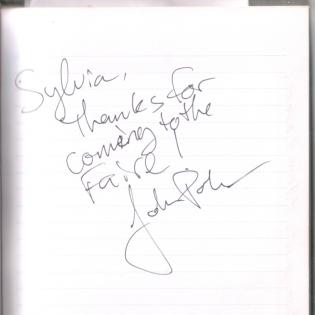 Sylvia,
thanks for
coming to the
Faire!
John